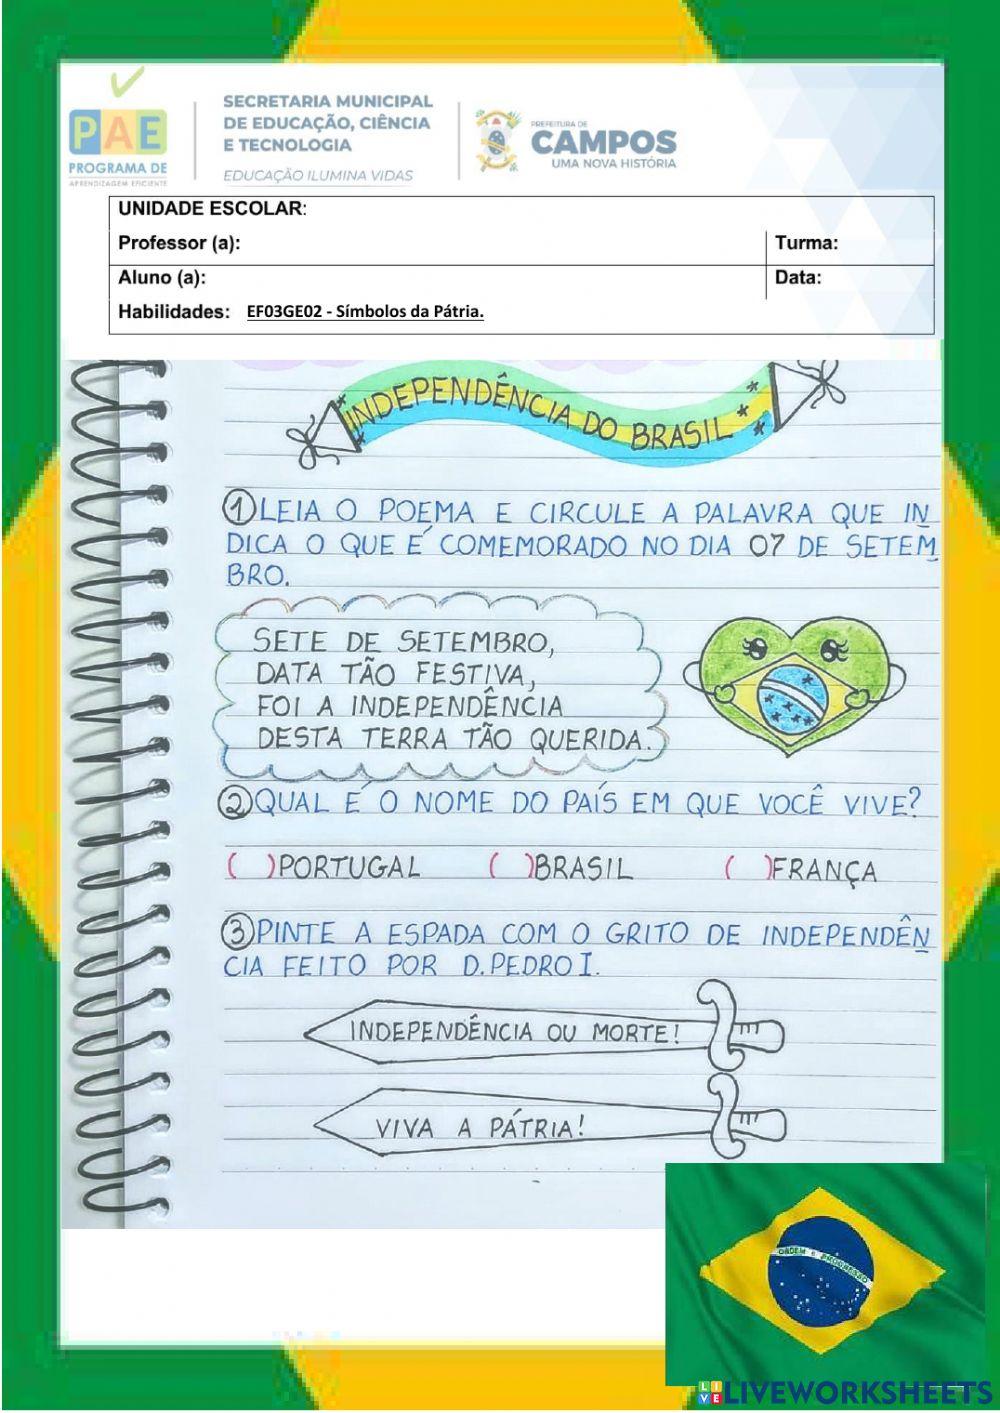 PAE
PROGRAMA DE
APRENDIZAGEM EFICIENTE
SECRETARIA MUNICIPAL
DE EDUCAÇÃO, CIÊNCIA
E TECNOLOGIA
EDUCAÇÃO ILUMINA VIDAS
PREFEITURA DE
CAMPOS
UMA NOVA HISTÓRIA
UNIDADE ESCOLAR:
Professor (a):
Turma:
Aluno (a):
Data:
Habilidades: EF03GE02 - Símbolos da Pátria.
INDEPENDÊNCIA DO BRASIL
1 LEIA O POEMA E CIRCULE A PALAVRA QUE IN
DICA O QUE É COMEMORADO NO DIA 07 DE SETEM
BRO.
SETE DE SETEMBRO,
DATA TÃO FESTIVA,
FOI A INDEPENDÊNCIA
DESTA TERRA TÃO QUERIDA.
2 QUAL É O NOME DO PAÍS EM QUE VOCÊ VIVE?
( ) PORTUGAL ( ) BRASIL ( ) FRANÇA
3 PINTE A ESPADA COM O GRITO DE INDEPENDÊN
CIA FEITO POR D. PEDRO I.
INDEPENDÊNCIA OU MORTE!
VIVA A PÁTRIA!
ORDEM E PROGRESSO
LIVE LIVEWORKSHEETS